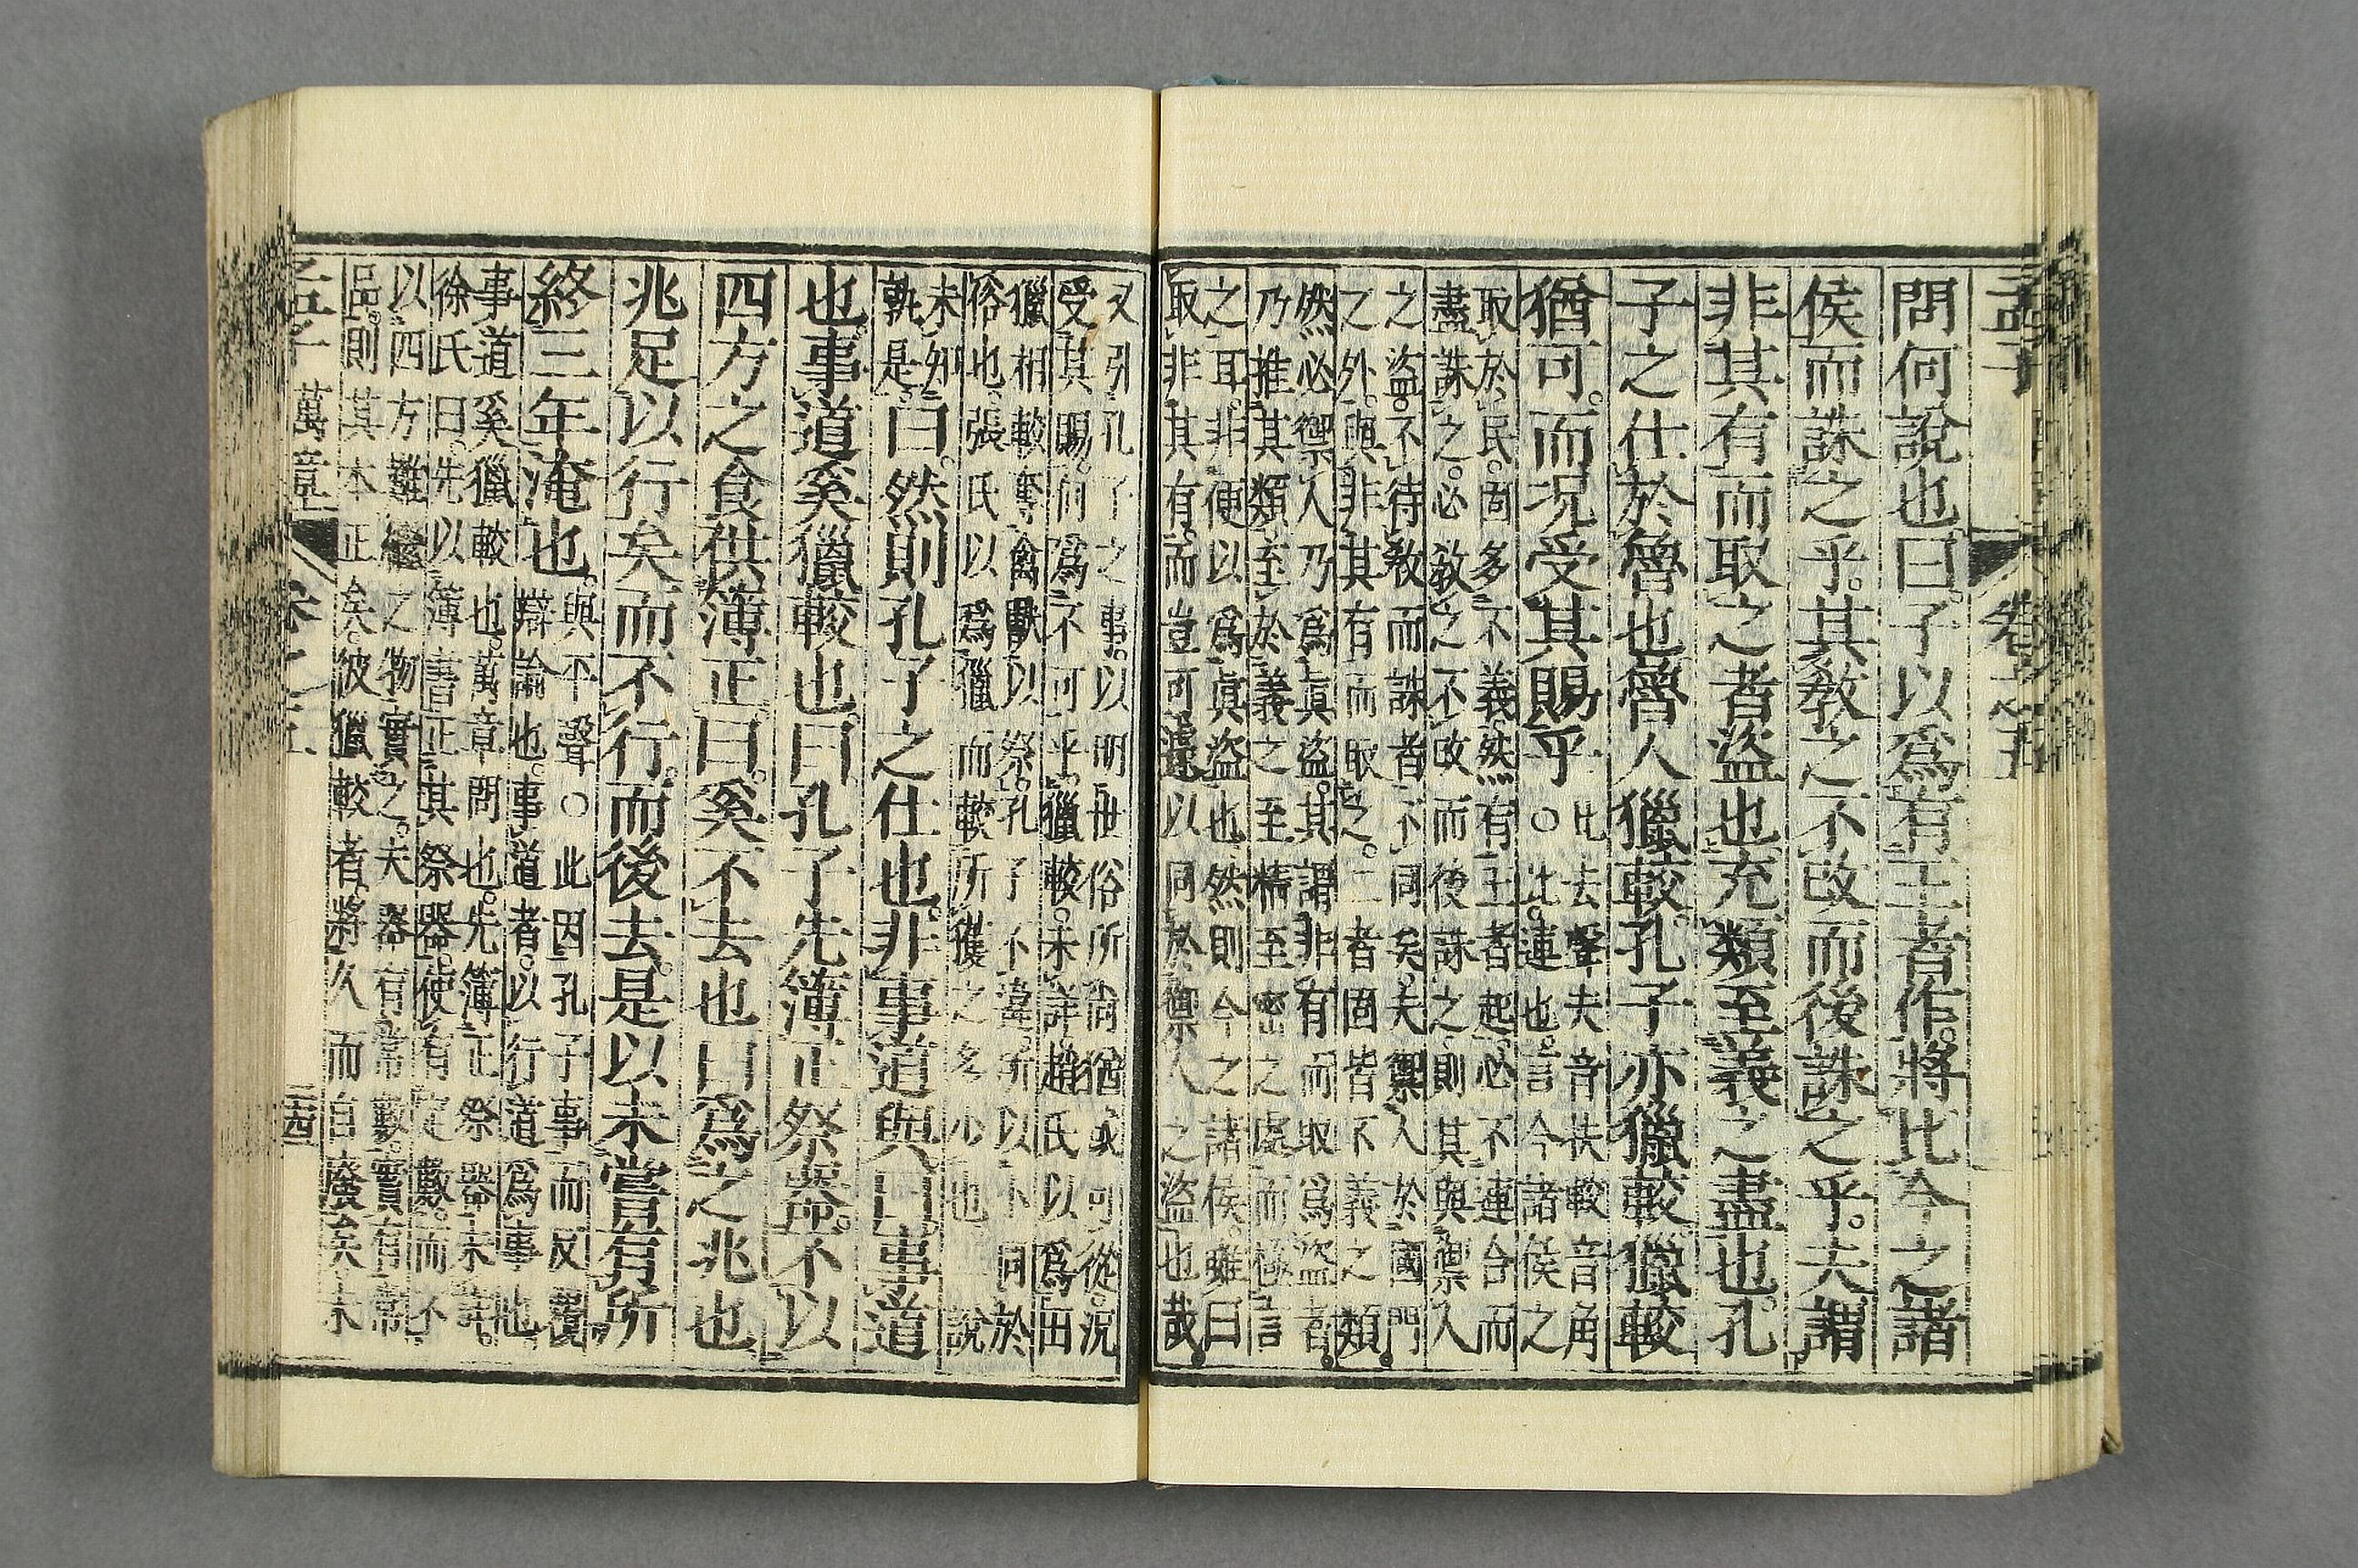 孟子 卷之五
問何說也曰。子以爲有王者作。將比今之諸
侯而誅之乎。其教之不改而後誅之乎。夫謂
非其有而取之者盜也充類至義之盡也。孔
子之仕於魯也魯人獵較。孔子亦獵較獵較
猶可。而況受其賜乎
比去聲夫音扶較音角
○比。連也。言今諸侯之
取於民。固多不義。然有王者起。必不連合而
盡誅之。必教之不改而後誅之。則其與禦人
之盜。不待教而誅者不同矣。夫禦人於國門
之外。與非其有而取之。二者固皆不義之類。
然必禦人乃爲眞盜。其謂非有而取爲盜者。
乃推其類。至於義之至精至密之處而極言
之耳。非便以爲眞盜也然則今之諸侯。雖曰
取非其有。而豈可遽以同於禦人之盜也哉。
又引孔子之事。以明世俗所尚猶或可從。況
受其賜。何爲不可乎。獵較。未詳。趙氏以爲田
獵相較奪禽獸以祭。孔子不違。所以小同於
俗也。張氏以爲獵而較所獲之多少也二說
未知
孰是。
曰。然則孔子之仕也。非事道與曰。事道
也。事道奚獵較也。曰孔子先簿正祭器。不以
四方之食供簿正。曰。奚不去也曰爲之兆也
兆足以行矣而不行。而後去。是以未嘗有所
終三年淹也。
與平聲○此因孔子事而反覆
辯論也。事道者。以行道爲事也
事道奚獵較也。萬章問也。先簿正祭器未詳。
徐氏曰。先以簿書正其祭器。使有定數。而不
以四方難繼之物實之。夫器有常數。實有常
品。則其本正矣。彼獵較者。將久而自廢矣未
孟子 萬章 卷之五